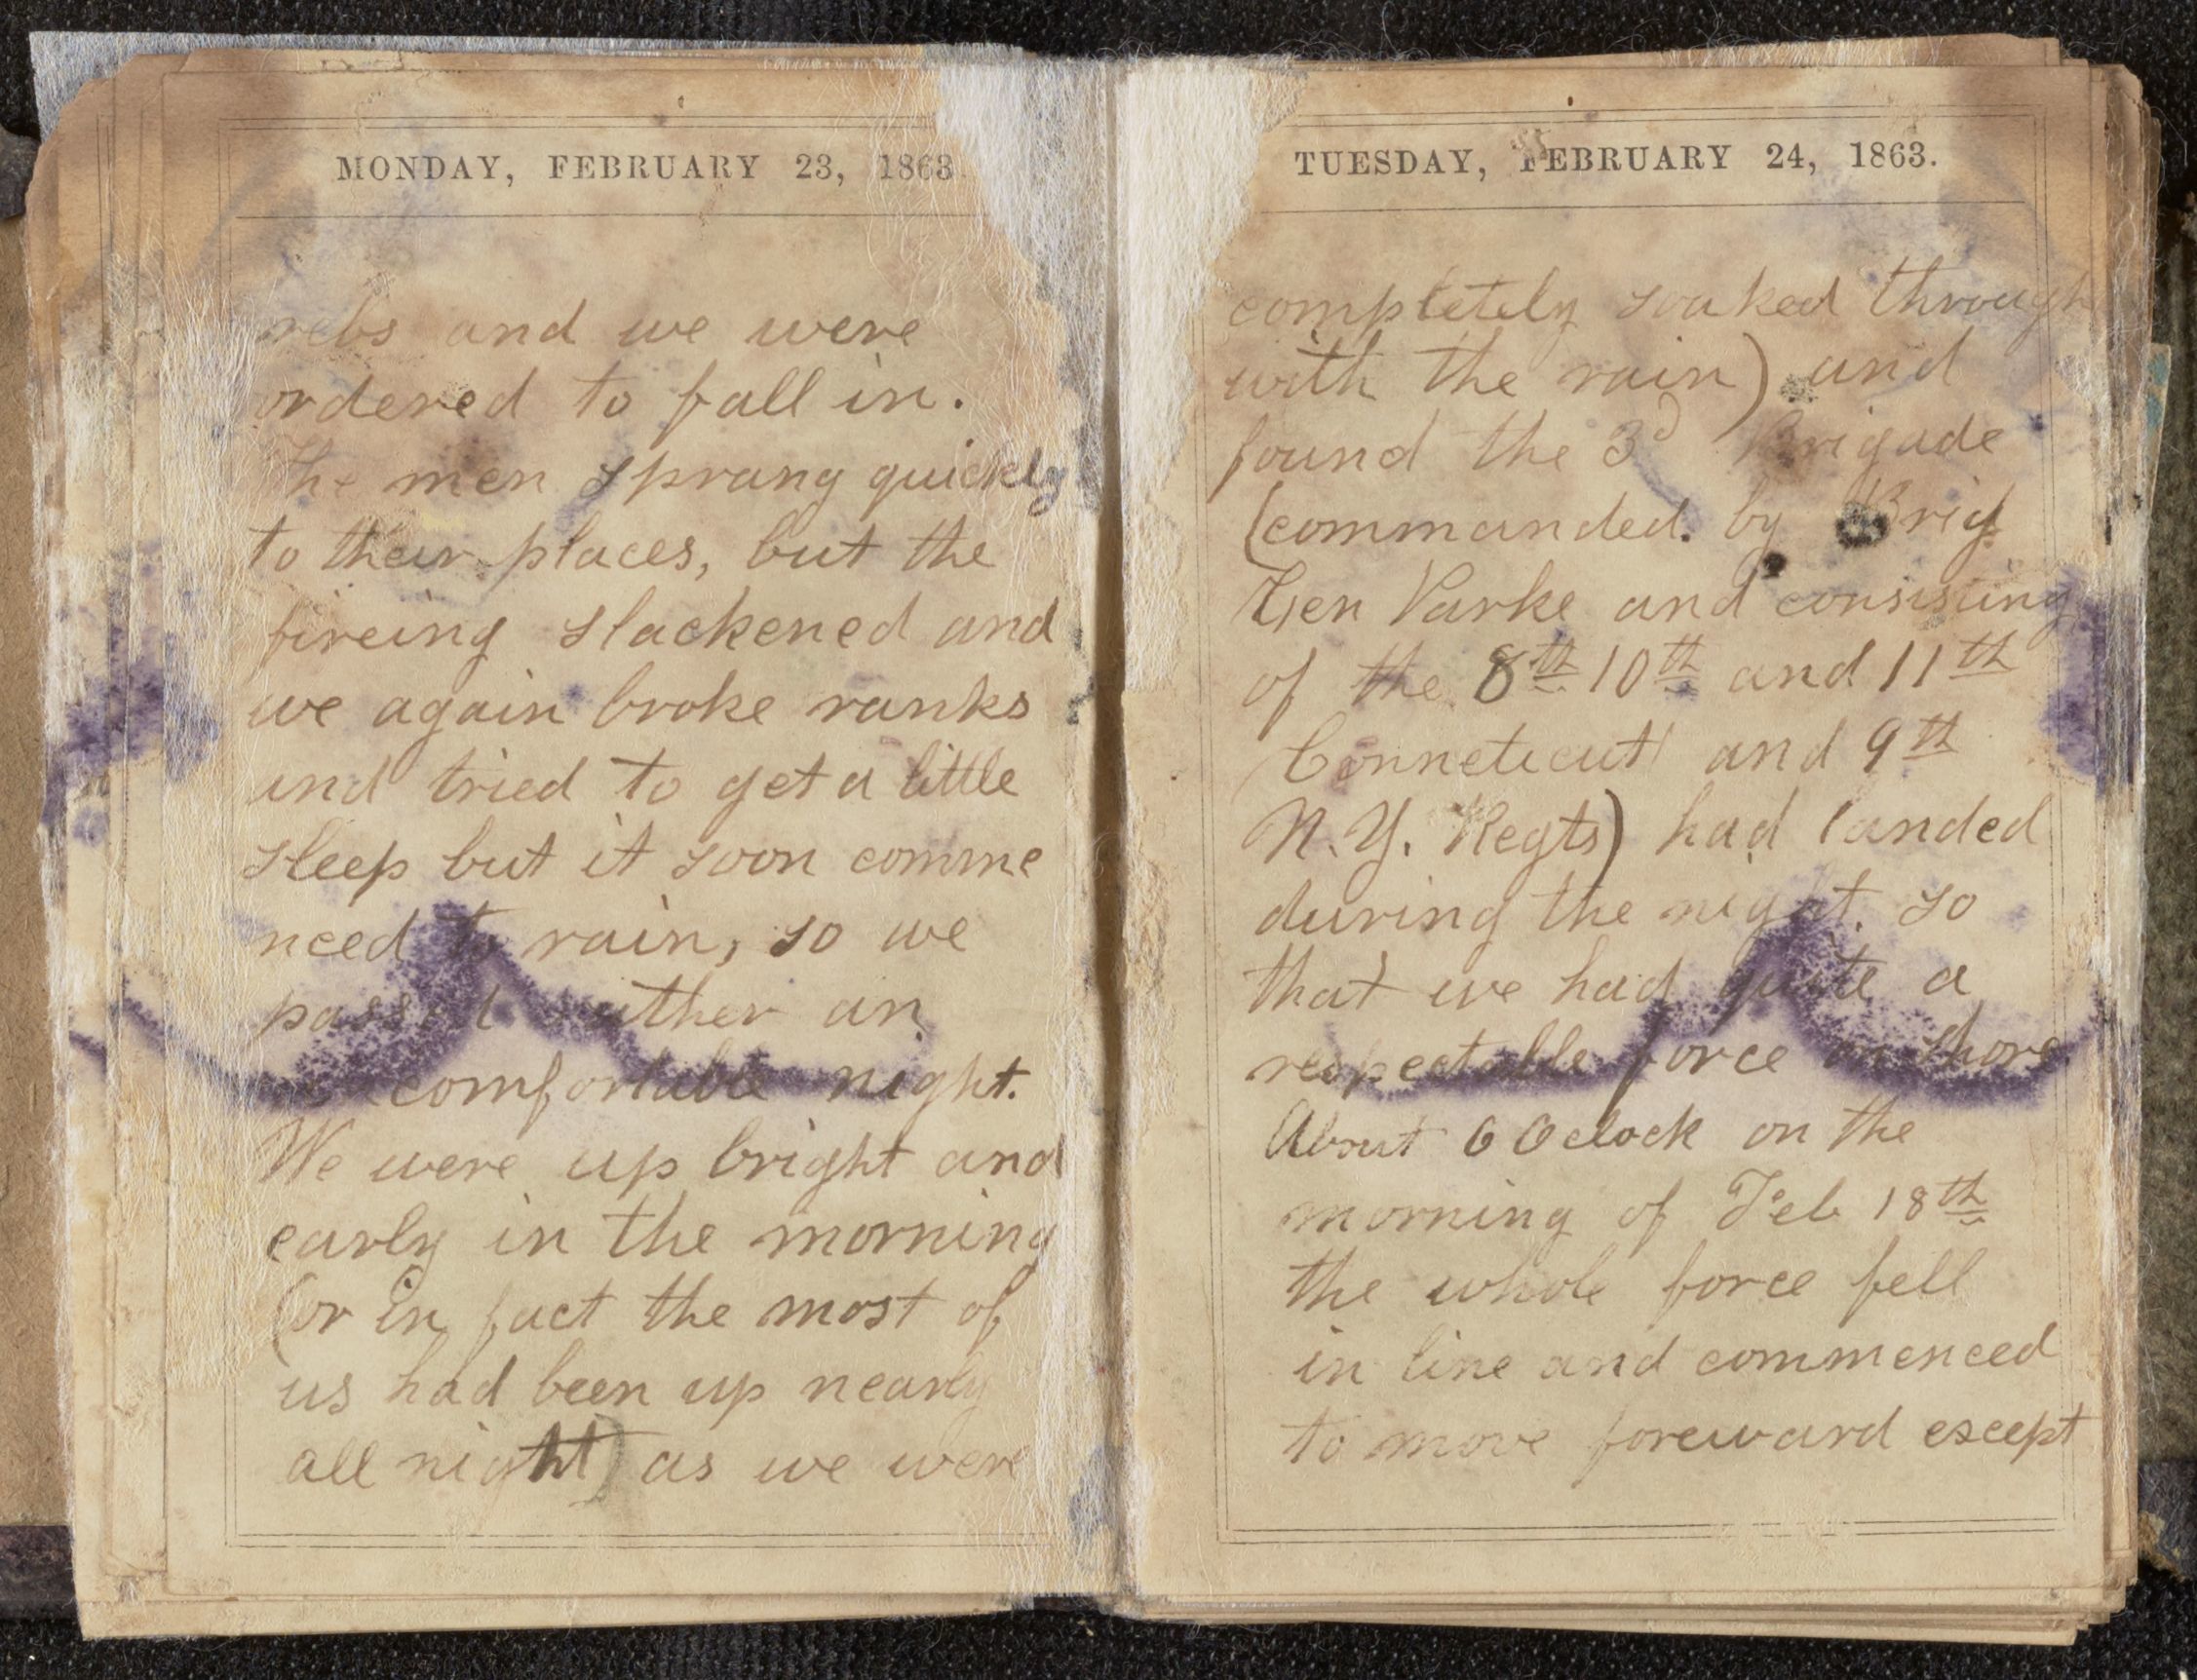 MONDAY, FEBRUARY 23, 1863
rebs and we were
ordered to fall in.
The men sprang quickly
to their places, but the
fireing slackened and
we again broke ranks
and tried to get a little
sleep but it soon comme
nced to rain, so we
passed rather an
comfortable night.
We were up bright and
early in the morning
(or in fact the most of
us had been up nearly
all night) as we were
TUESDAY, FEBRUARY 24, 1863.
completely soaked through
with the rain) and
found the 3d Brigade
(commanded. by Brig
Gen Parke and consisting
of the 8th 10th and 11th
Conneticut and 9th
N.Y. Regts) had landed
during the night. so
that we had quite a
respectable force on shore
About 6 Oclock on the
morning of Feb 18th
the whole force fell
in line and commenced
to move foreward except